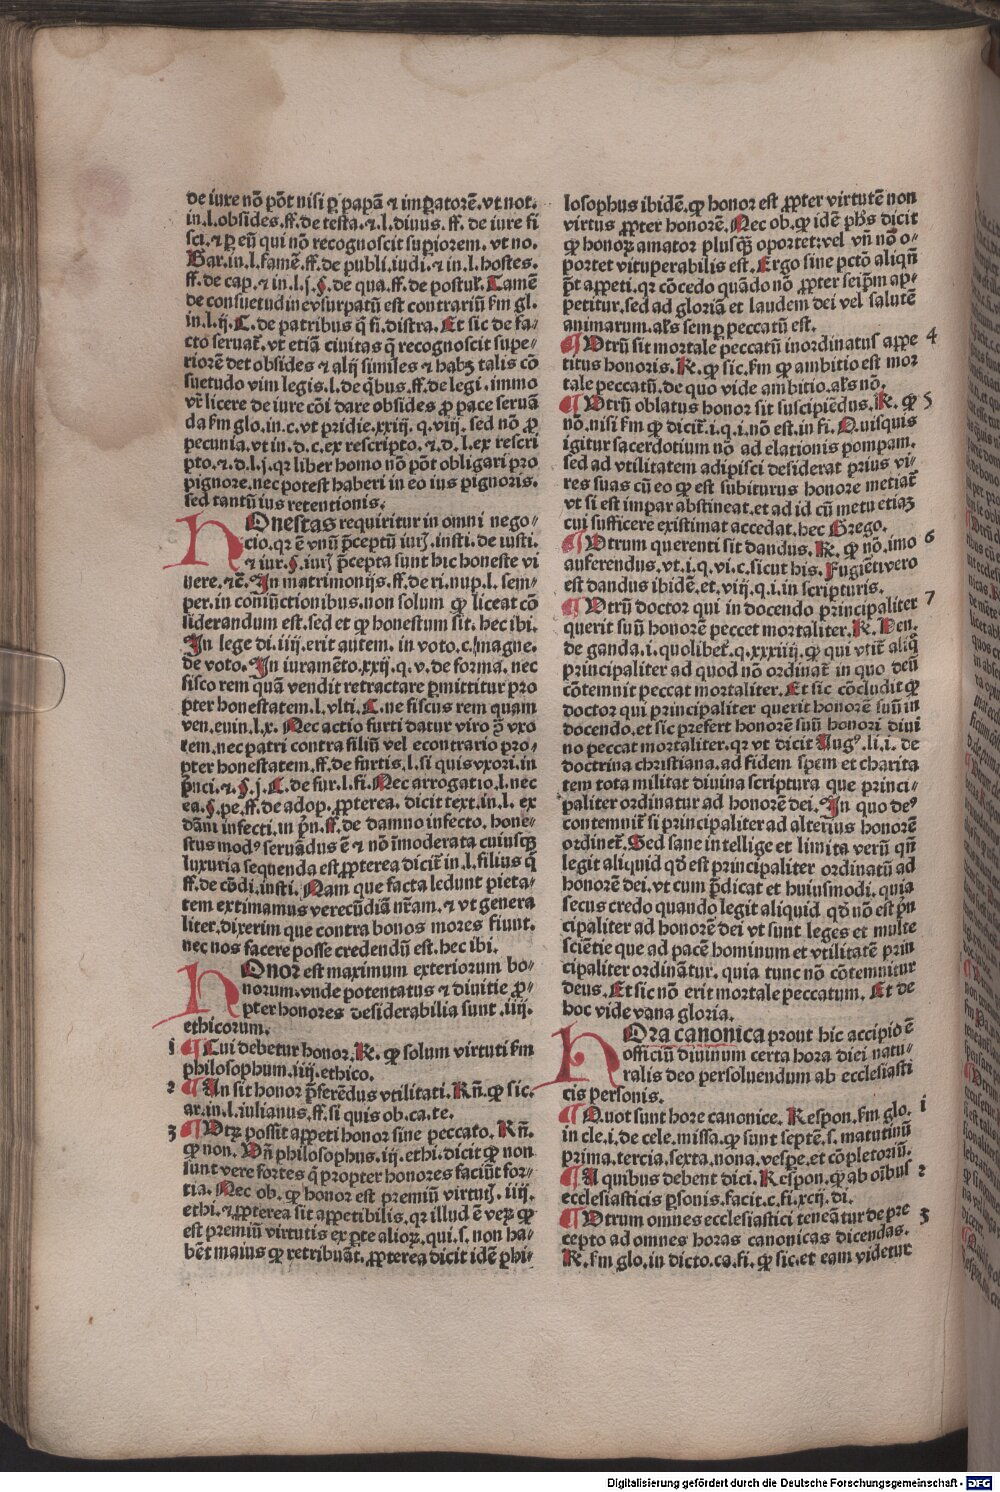 de iure nõ põt nisi ꝑ papã ⁊ imꝑatorẽ. vt not.
in. l. obsides. ff. de testa. ⁊. l. diuus. ff. de iure fi
sci. ⁊ ꝑ eũ qui nõ recognoscit suꝑiorem. vt no.
Bar. in. l. famẽ. ff. de publi. iudi. ⁊ in. l. hostes.
ff. de cap. ⁊ in. l. j. §. de qua. ff. de postul. Tamẽ
de consuetudine vsurpatũ est contrariũ ẜm gl.
in. l. ij. C. de patribus q̃ fi. distra. Et sic de fa-
cto seruat̃. vt etiã ciuitas q̃ recognoscit supe-
riorẽ det obsides ⁊ alij similes ⁊ habꝫ talis cõ
suetudo vim legis. l. de q̃bus. ff. de legi. immo
vr̃ licere de iure cõi dare obsides ꝓ pace seruã
da ẜm glo. in. c. vt pridie. xxiij. q. viij. sed nõ ꝓ
pecunia. vt in. d. c. ex rescripto. ⁊. d. l. ex rescri
pto. ⁊. d. l. j. qꝛ liber homo nõ põt obligari pro
pignore. nec potest haberi in eo ius pignoris.
sed tantũ ius retentionis.
HOnestas requiritur in omni nego-
cio. qꝛ ẽ vnũ p̃ceptũ iurꝭ. insti. de iusti.
⁊ iur. §. iurꝭ p̃cepta sunt hic honeste vi
uere. ⁊c̃. In matrimonijs. ff. de ri. nup. l. sem-
per. in coniũctionibus. non solum qꝫ liceat cõ
siderandum est. sed et qꝫ honestum sit. hec ibi.
In lege di. iiij. erit autem. in voto. c. magne.
de voto. In iuramẽto. xxij. q. v. de forma. nec
fisco rem quã vendit retractare ꝑmittitur pro
pter honestatem. l. vlti. C. ne fiscus rem quam
ven. euin. l. x. Nec actio furti datur viro ꝯ̃ vxo
rem. nec patri contra filiũ vel econtrario pro-
pter honestatem. ff. de furtis. l. si quis vxori. in
p̃nci. ⁊. §. j. C. de fur. l. fi. Nec arrogatio. l. nec
ea. §. pe. ff. de adop. ꝓpterea. dicit text. in. l. ex
dãni infecti. in p̃n. ff. de damno infecto. hone-
stus modꝰ seruãdus ẽ ⁊ nõ ĩmoderata cuiusqꝫ
luxuria sequenda est. ꝓpterea dicit̃ in. l. filius q̃
ff. de cõdi. insti. Nam que facta ledunt pieta-
tem extimamus verecũdiã nr̃am. ⁊ vt genera
liter. dixerim que contra bonos mores fiunt.
nec nos facere posse credendũ est. hec ibi.
HOnor est maximum exteriorum bo-
norum. vnde potentatus ⁊ diuitie ꝓ-
pter honores desiderabilia sunt. iiij.
ethicorum.
1 ¶ Cui debetur honor. R̃. qꝫ solum virtuti ẜm
philosophum. iiij. ethico.
2 ¶ An sit honor p̃ferẽdus vtilitati. Rñ. qꝫ sic.
ar. in. l. iulianus. ff. si quis ob. ca. te.
3 ¶ Vtꝝ possit appeti honor sine peccato. Rñ.
qꝫ non. Vñ philosophus. iij. ethi. dicit qꝫ non
sunt vere fortes q̃ propter honores faciũt for-
tia. Nec ob. qꝫ honor est premiũ virtutꝭ. iiij.
ethi. ⁊ ꝓpterea sit appetibilis. qꝛ illud ẽ veꝝ qꝫ
est premiũ virtutis ex ꝑte alioꝝ. qui. s. non ha-
bẽt maius qꝫ retribuãt. ꝓpterea dicit idẽ phi-
losophus ibidẽ. qꝫ honor est ꝓpter virtutẽ non
virtus ꝓpter honorẽ. Nec ob. qꝫ idẽ ph̃s dicit
qꝫ honoꝝ amator plusqꝫ̃ oportet: vel vñ nõ o-
portet vituperabilis est. Ergo sine pctõ aliqñ
p̃t appeti. qꝛ cõcedo quãdo nõ ꝓpter seip̃m ap-
petitur. sed ad gloriã et laudem dei vel salutẽ
animarum. als̃ semꝑ peccatũ est.
¶ Vtrũ sit mortale peccatũ inordinatus appe 4
titus honoris. R̃. qꝫ sic. ẜm qꝫ ambitio est mor
tale peccatũ. de quo vide ambitio. als̃ nõ.
¶ Vtrũ oblatus honor sit suscipiẽdus. R̃. qꝫ 5
nõ. nisi ẜm qꝫ dicit̃. i. q. i. nõ est. in fi. Quisquis
igitur sacerdotium nõ ad elationis pompam.
sed ad vtilitatem adipisci desiderat prius vi-
res suas cũ eo qꝫ est subiturus honore metiat̃
vt si est impar abstineat. et ad id cũ metu etiaꝫ
cui sufficere existimat accedat. hec Grego.
¶ Vtrum querenti sit dandus. R̃. qꝫ nõ. imo 6
auferendus. vt. i. q. vi. c. sicut his. Fugiẽti vero
est dandus ibidẽ. et. viij. q. i. in scripturis.
¶ Vtrũ doctor qui in docendo principaliter 7
querit suũ honorẽ peccet mortaliter. R̃. Hen.
de ganda. i. quolibet̃. q. xxxiiij. qꝫ qui vtit̃ aliq̃
principaliter ad quod nõ ordinat̃ in quo deũ
cõtemnit peccat mortaliter. Et sic cõcludit qꝫ
doctor qui principaliter querit honorẽ suũ in
docendo. et sic prefert honorẽ suũ honori diui
no peccat mortaliter. qꝛ vt dicit Augꝰ. li. i. de
doctrina christiana. ad fidem spem et charita
tem tota militat diuina scriptura que princi-
paliter ordinatur ad honorẽ dei. In quo deꝰ
contemnit̃ si principaliter ad alterius honorẽ
ordinet̃. Sed sane intellige et limita verũ qñ
legit aliquid qđ est principaliter ordinatũ ad
honorẽ dei. vt cum p̃dicat et huiusmodi. quia
secus credo quando legit aliquid qđ nõ est p̃n
cipaliter ad honorẽ dei vt sunt leges et multe
sciẽtie que ad pacẽ hominum et vtilitatẽ prin
cipaliter ordinãtur. quia tunc nõ cõtemnitur
deus. Et sic nõ erit mortale peccatum. Et de
hoc vide vana gloria.
HOra canonica prout hic accipio ẽ
officiũ diuinum certa hora diei natu-
ralis deo persoluendum ab ecclesiasti
cis personis.
¶ Quot sunt hore canonice. Respon. ẜm glo. 1
in cle. i. de cele. missa. qꝫ sunt septẽ. s. matutinũ
prima. tercia. sexta. nona. vesꝑe. et cõpletoriũ.
¶ A quibus debent dici. Respon. qꝫ ab oĩbus 2
ecclesiasticis ꝑsonis. facit. c. fi. xcij. di.
¶ Vtrum omnes ecclesiastici teneãtur de pre 3
cepto ad omnes horas canonicas dicendas.
R̃. ẜm glo. in dicto. ca. fi. qꝫ sic. et eam videtur
Digitalisierung gefördert durch die Deutsche Forschungsgemeinschaft - DFG